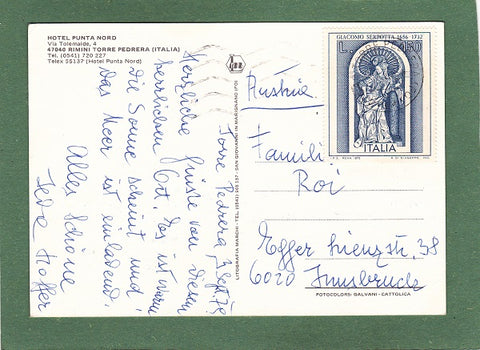 HOTEL PUNTA NORD
Via Tolemaide, 4
47040 RIMINI TORRE PEDRERA (ITALIA)
Tel. (0541) 720 227
Telex 55137 (Hotel Punta Nord)
Torre Pedrera, Sept 79
Herzliche Grüsse von diesem
herrlichen Ort. Es ist warm
die Sonne scheint und
das Meer ist einladend.
Alles Schöne
LITOGRAFIA MARCHI - TEL. (0541) 955 - SAN GIOVANNI IN MARIGNANO (FO)
GIACOMO SERPOTTA 1656 - 1732
L. 150
ITALIA
Austria
Famili
Roi
Egger Lienzstr. 38
6020 Innsbruck
FOTOCOLORS: GALVANI - CATTOLICA